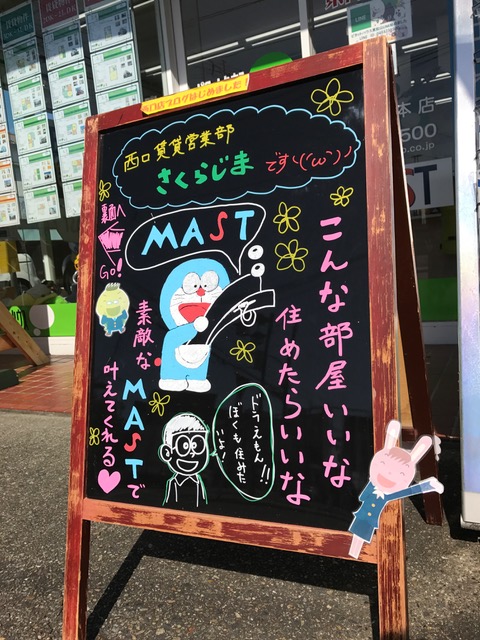 西口店ブログはじめました！
西口賃貸営業部
さくらじま
です╰(´ω`)╯
MAST
こんな部屋いいな
住めたらいいな
素敵なMASTで
叶えてくれる♥
ドラえもん!!
ぼくも住みた
いよ!
Go!
本店
500
co.jp
ST